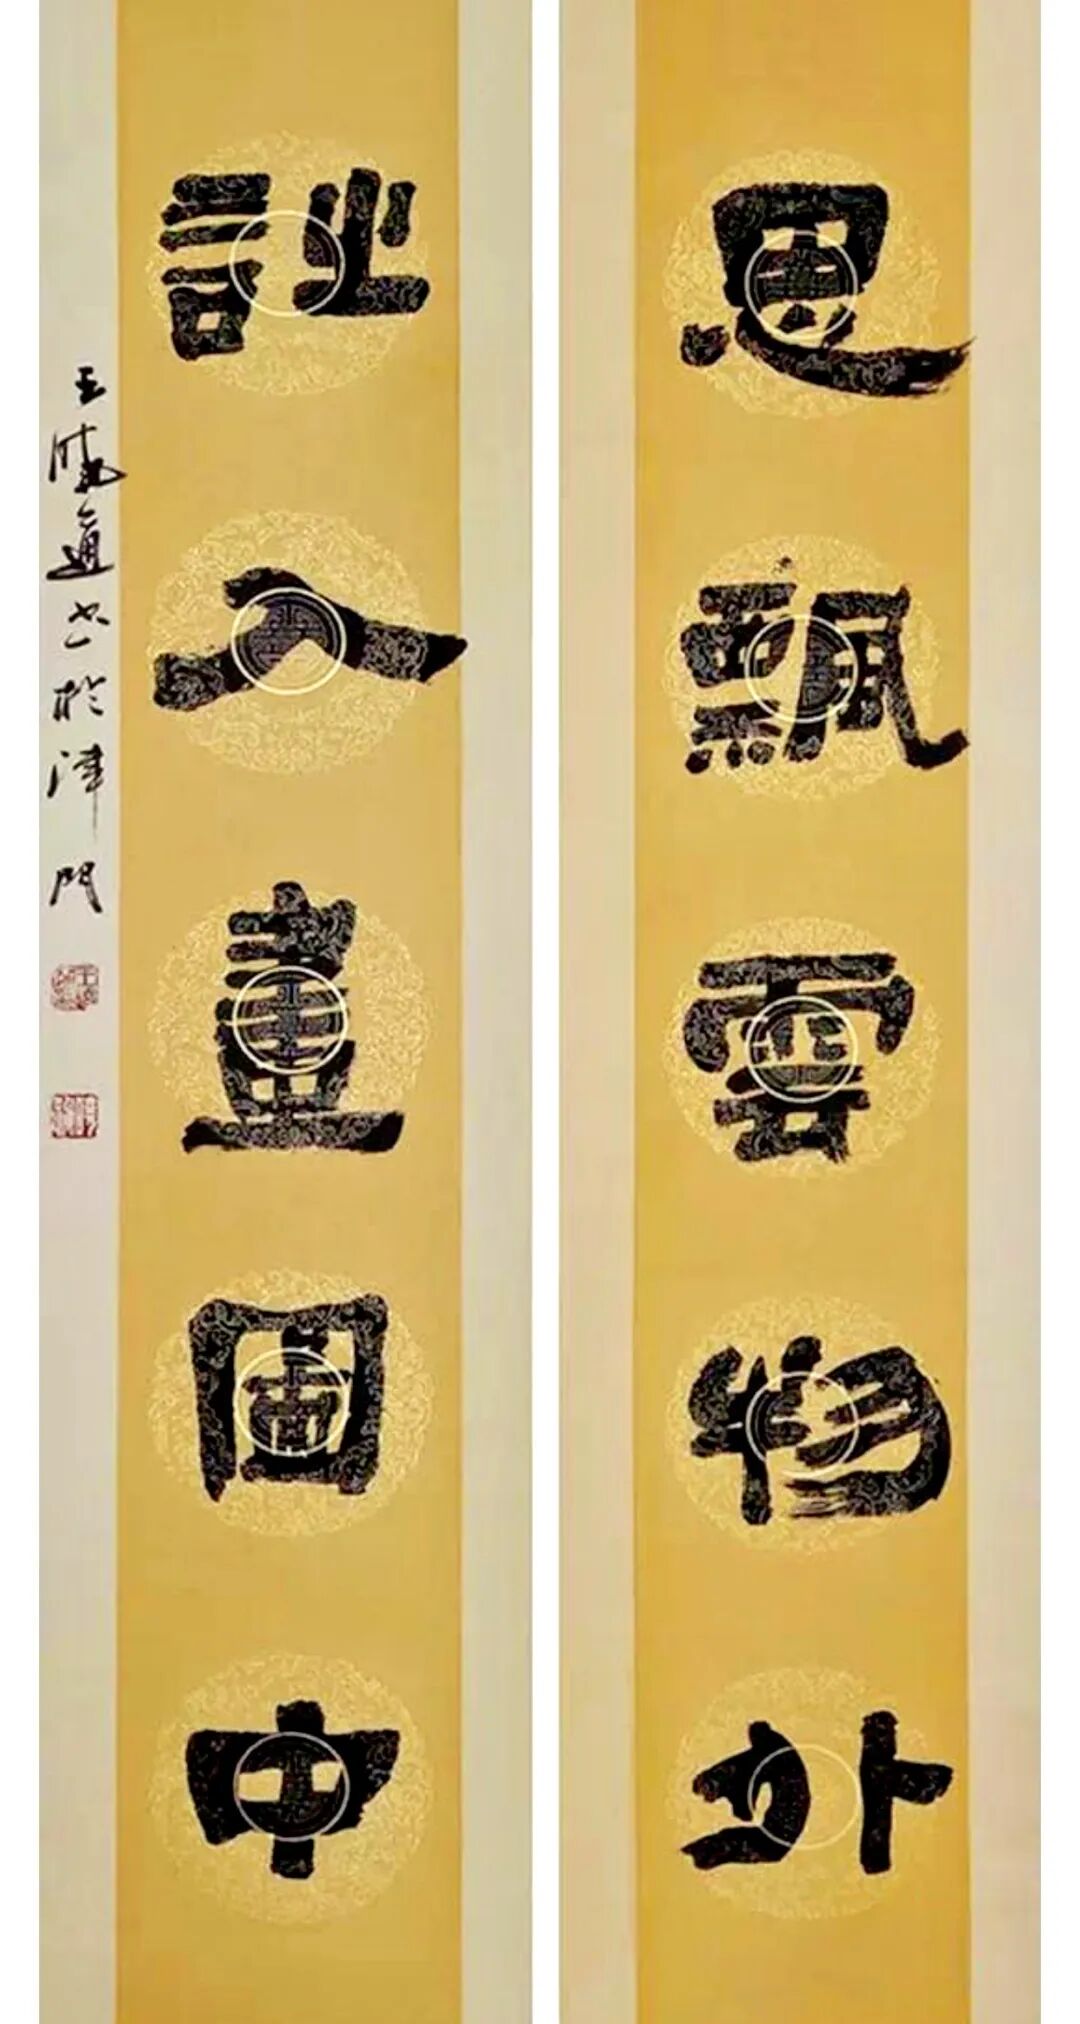 思飄雲物外
詩入畫圖中
王 書於津門